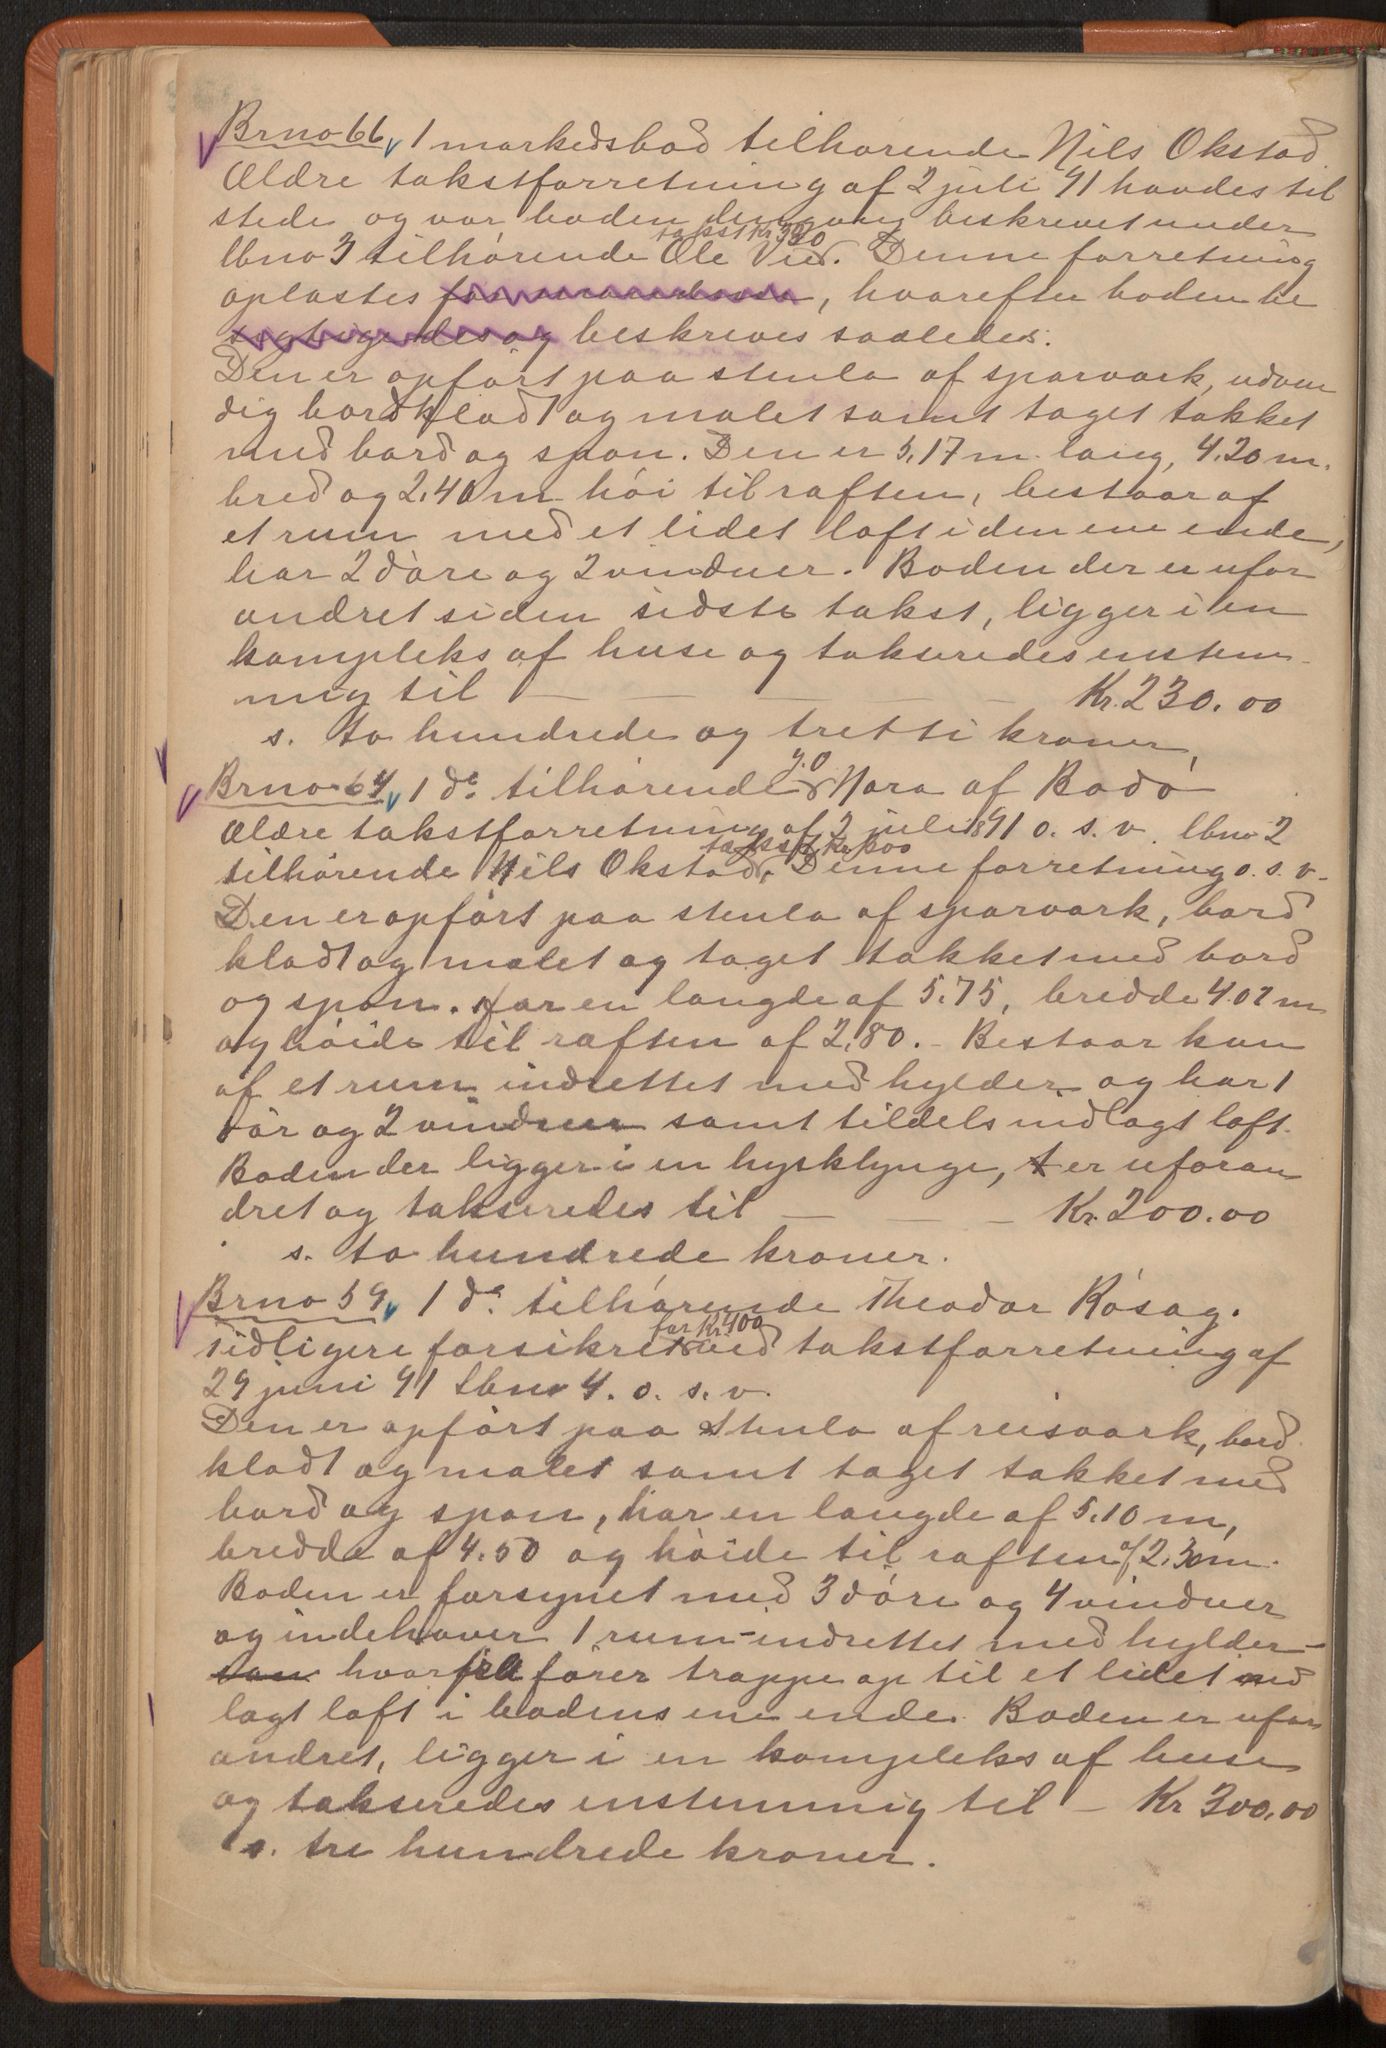 Brno 66, 1 markedsbod tilhørende Nils Okstad.
Ældre takstforretning af 2 juli 91 havdes til
stede og var boden dengang beskrevet under
takst Kr. 300
lbno 3 tilhørende Ole Vie. Denne forretning
oplæstes, hvorefter boden be
sigtigedes og beskreves saaledes:
Den er opført paa stenla af sparværk, udven
dig bordklædt og malet samt taget tækket
med bord og spon. Den er 5,17 m. lang, 4.20 m.
bred og 2.40 m høi til raften, bestaar af
et rum med et lidet loft i den ene ende,
har 2 døre og 2 vinduer. Boden der er ufor
andret siden sidste takst, ligger i en
kompleks af huse og takseredes enstem-
mig til — — — Kr. 230.00
s. to hundrede og tretti kroner,
Brno 64, 1 do. tilhørende J.O. Hara af Bodø
Ældre takstforretning af 2 juli 1891 o. s. v. lbno 2
takst Kr. 300
tilhørende Nils Okstad. Denne forretning o. s. v.
Den er opført paa stenla af sparværk, bord
klædt og malet og taget tækket med bord
og spon. Har en længde af 5.75, bredde 4.02 m
og høide til raften af 2.80. - Bestaar kun
af et rum indrettet med hylder og har 1
dør og 2 vinduer samt tildels indlagt loft.
Boden der ligger i en husklynge, er uforan
dret og takseredes til — — — Kr. 200.00
s. to hundrede kroner.
Brno 59, 1 do. tilhørende Theodor Røsag.
for Kr. 400
tidligere forsikret ved takstforretning af
29 juni 91 Lbno 4. o. s. v.
Den er opført paa stenla af reisværk, bord
klædt og malet samt taget tækket med
bord og spon, har en længde af 5.10 m,
bredde af 4.50 og høide til raften af 2.30 m.
Boden er forsynet med 3 døre og 4 vinduer
og indehaver 1 rum indrettet med hylder -
som hvorfra fører trappe op til et lidet ned
lagt loft i bodens ene ende. Boden er ufor
andret, ligger i en kompleks af huse
og takseredes enstemmig til — Kr 300.00
s. tre hundrede kroner.